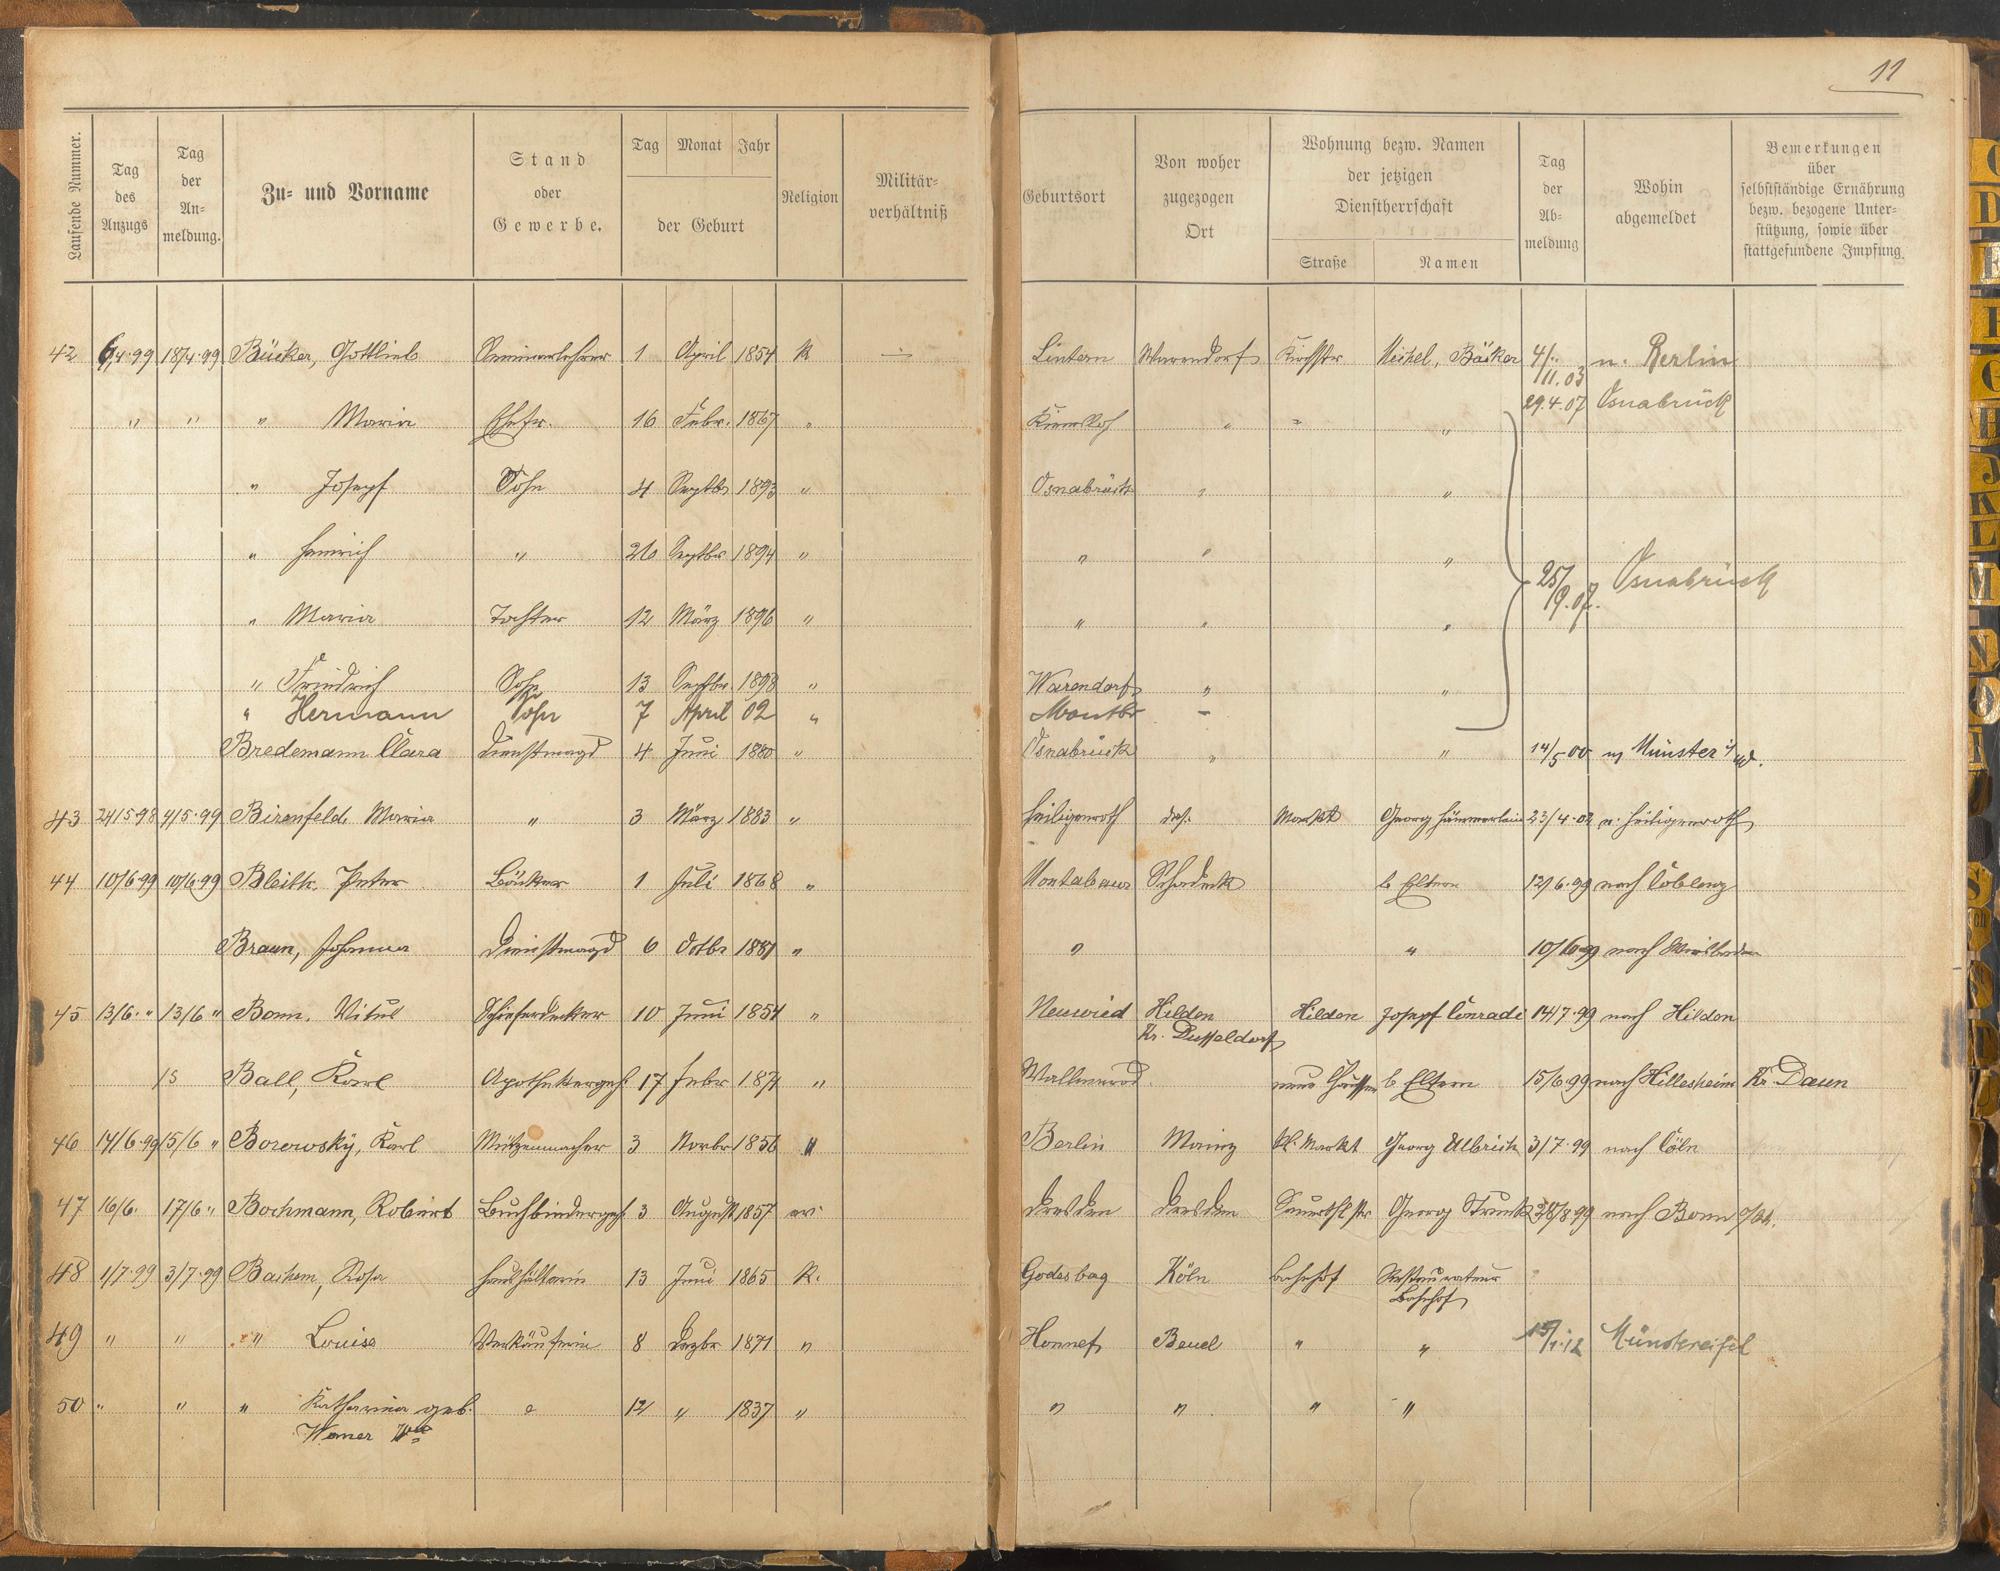 11
Laufende Nummer.
Tag des Anzugs
Tag der An-meldung.
Zu- und Vorname
Stand oder Gewerbe.
Tag Monat Jahr
der Geburt
Religion
Militär-verhältniß
Geburtsort
Von woher zugezogen Ort
Wohnung bezw. Namen der jetzigen Dienstherrschaft
Straße Namen
Tag der Ab-meldung
Wohin abgemeldet
Bemerkungen über selbstständige Ernährung bezw. bezogene Unter-stützung, sowie über stattgefundene Impfung.
42 6/4.99 18/4.99 Bücker, Gottlieb Seminarlehrer 1 April 1854 K. Lintern Warendorf Kirchstr 4/11.03 n. Berlin
29.4.07 Osnabrück
" " " Maria Ehefr. 16 Febr. 1867 " " " "
" Josepf Sohn 4 Septbr 1893 " Osnabrück " "
" Heinrich " 26 Septbr 1894 " " " " 25/9.07. Osnabrück
" Maria Tochter 12 März 1896 " " " "
" Friedrich Sohn 13 Septbr. 1898 " Warendorf " "
" Hermann Sohn 7 April 02 " Montbr –
Bredemann Clara Dienstmagd 4 Juni 1880 " Osnabrück " " 14/5 00 n/ Münster i/W.
43 24/5 98 4/5.99 Birenfeld, Maria " 3 März 1883 " Heiligenroth das. Markt Georg Hämmerlein 23/4.02 n. Heiligenroth
44 10/6 99 10/6.99 Bleith, Peter Bäcker 1 Juli 1868 " Montabaur b Eltern 12/6.99 nach Coblenz
Braun, Johanna Dienstmagd 6 Octbr 1881 " " " 10/6 99 nach Wiesbaden
45 13/6. " 13/6 " Bonn, Vitus Schieferdecker 10 Juni 1854 " Neuwied Hilden Hilden Josepf Conradi 14/7.99 nach Hilden
Kr. Dusseldorf
15 Ball, Karl Apothekergeh. 17 Febr 1871 " Wallmerod neue Chaussee b Eltern 15/6.99 nach Hillesheim Kr. Daun
46 14/6.99 15/6 " Borowsky, Karl Mützenmacher 3 Novbr 1856 " Berlin Mainz kl. Markt Georg Ulbrich 3/7.99 nach Cöln
47 16/6. 17/6 " Bochmann, Robert Buchbindergeh. 3 August 1857 ev. Dresden Dresden Georg Strunk /8 99 nach Bonn a/Rh.
48 1/7.99 3/7.99 Bachem, Rosa Haushälterin 13 Juni 1865 K. Godesbag Köln Bahnhof Restaurateur
Bahnhof
49 " " " Louise Verkäuferin 8 Dezbr 1871 " Honnef Beuel " " /1.12 Münstereifel
50 " " " Katharina geb. " 12 " 1837 " " " " "
Werner Wwe